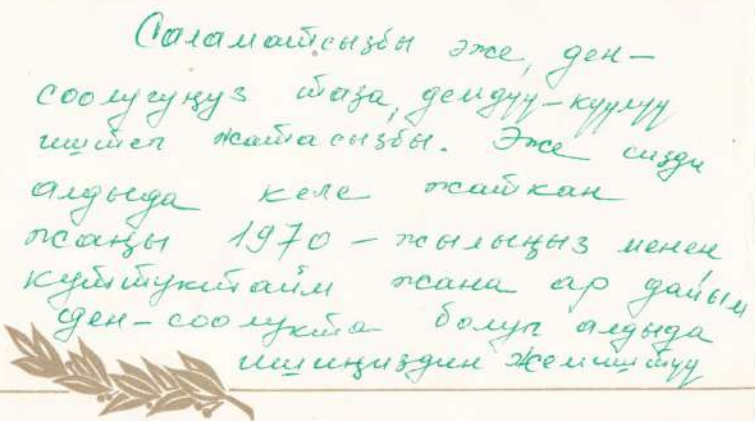 Саламатсызбы эже, ден-
соолугуңуз таза, демдүү-күүлүү
иштеп жатасызбы. Эже сизди
алдыда келе жаткан
жаңы 1970-жылыңыз менен
куттуктайм жана ар дайым
ден-соолукта болуп алдыда
ишиңиздин жемиштүү